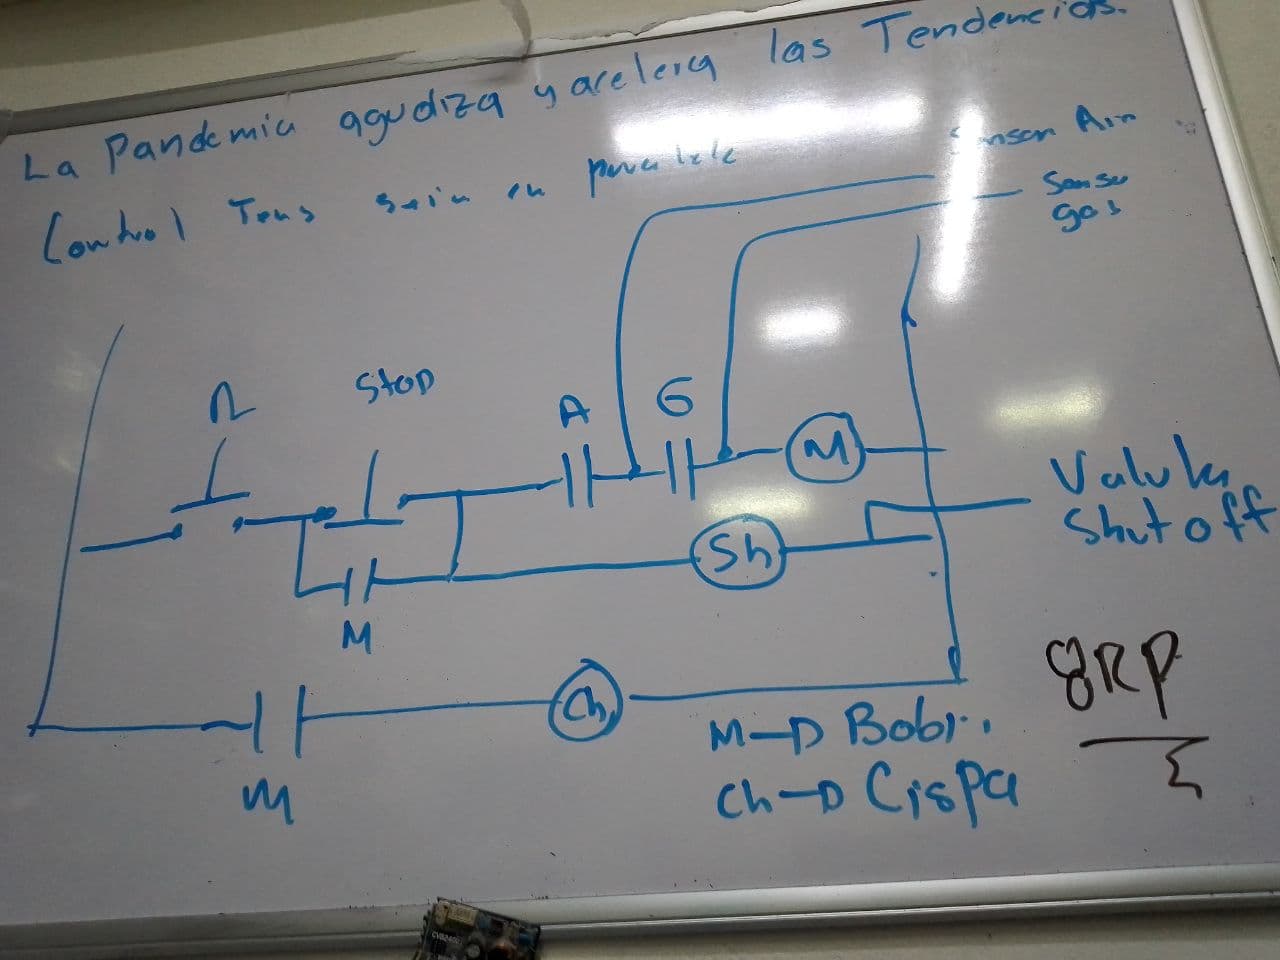 La Pandemia agudiza y acelera las Tendencias.
Control Tens serie en paralele
Sensor Air
Senso
gas
Stop
A
G
M
Valvula
Shut off
Sh
M
8RP
Ch
M
M→D Bobi..
Ch→D Cispa